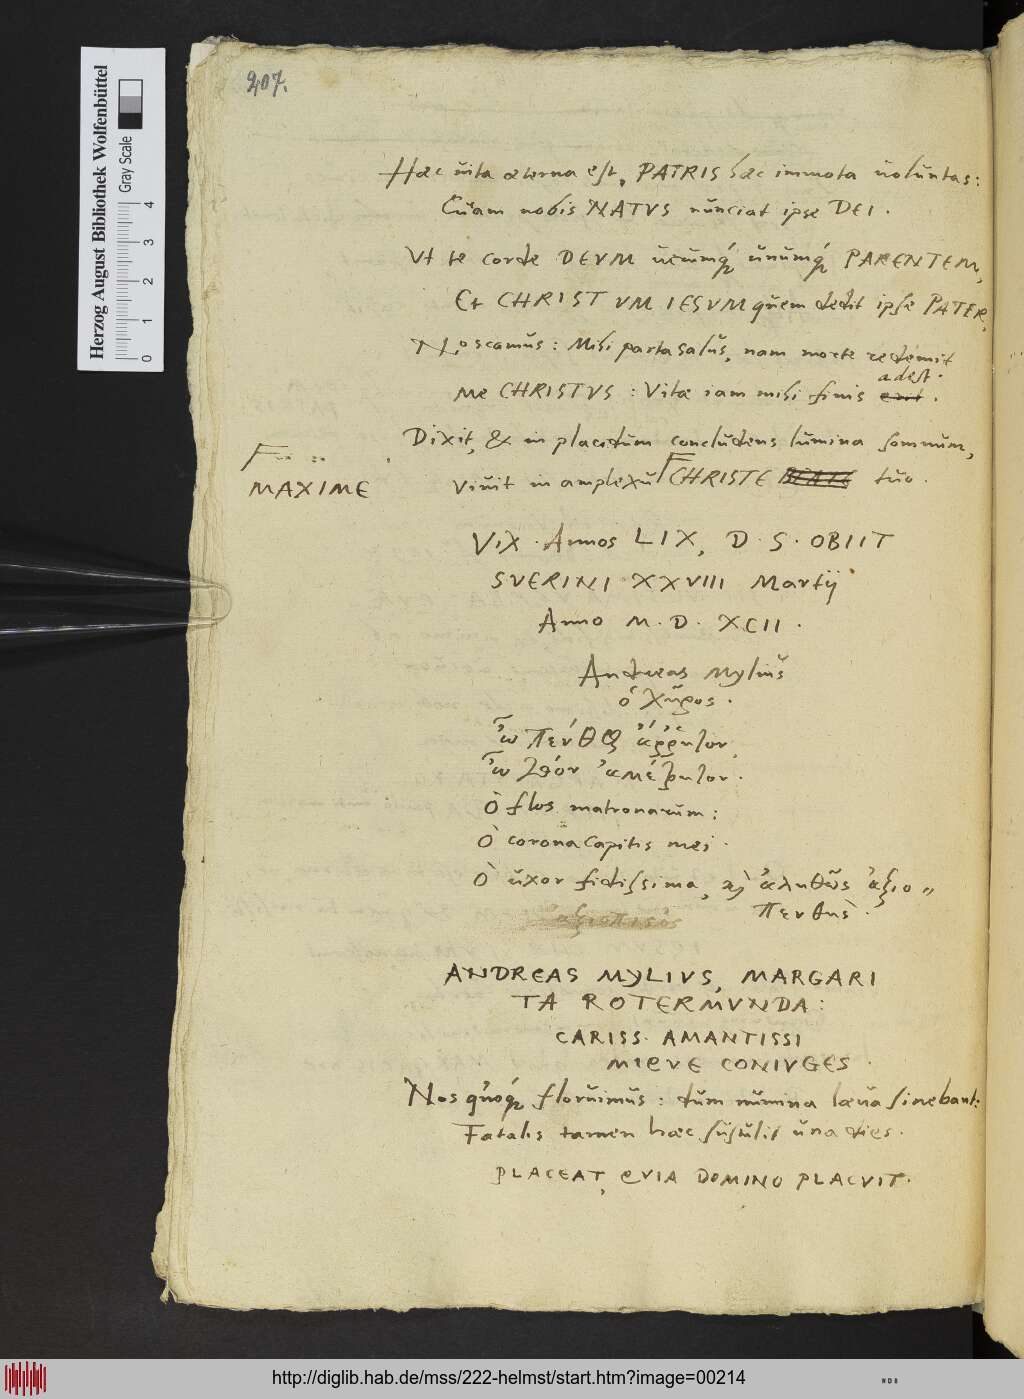 207.
Haec uita aeterna est, PATRIS haec immota uoluntas:
Quam nobis NATVS nunciat ipse DEI.
Vt te corde DEVM uerumq́ꝫ unumq́ꝫ PARENTEM,
Et CHRISTVM IESVM quem dedit ipse PATER,
Noscamus: Mihi parta salus, nam morte redemit
adest.
Me CHRISTVS: Vitae iam mihi finis erit.
Dixit, & in placidum concludens lumina somnum,
MAXIME
Viuit in amplexu CHRISTE BEATE tuo.
Vix. Annos LIX, D. S. OBIIT
SVERINI XXVIII Martij
Anno M. D. XCII.
Andreas Mylius
ὁ χῆρος.
ὦ πένθος ἄρρητον,
ὦ ἀμέτρητον.
Ò flos matronarum:
Ò corona Capitis mei.
Ò uxor fidissima, καὶ ἀληθῶς ἀξιο„
πενθής.
ἀξιοπενθής
ANDREAS MYLIVS, MARGARI
TA ROTERMVNDA:
CARISS. AMANTISSI
MIQVE CONIVGES.
Nos quoq́ꝫ floruimus: dum numina laeua sinebant:
Fatalis tamen haec sustulit una dies.
PLACEAT, QVIA DOMINO PLACVIT.
Herzog August Bibliothek Wolfenbüttel
Gray Scale
0 1 2 3 4
http://diglib.hab.de/mss/222-helmst/start.htm?image=00214